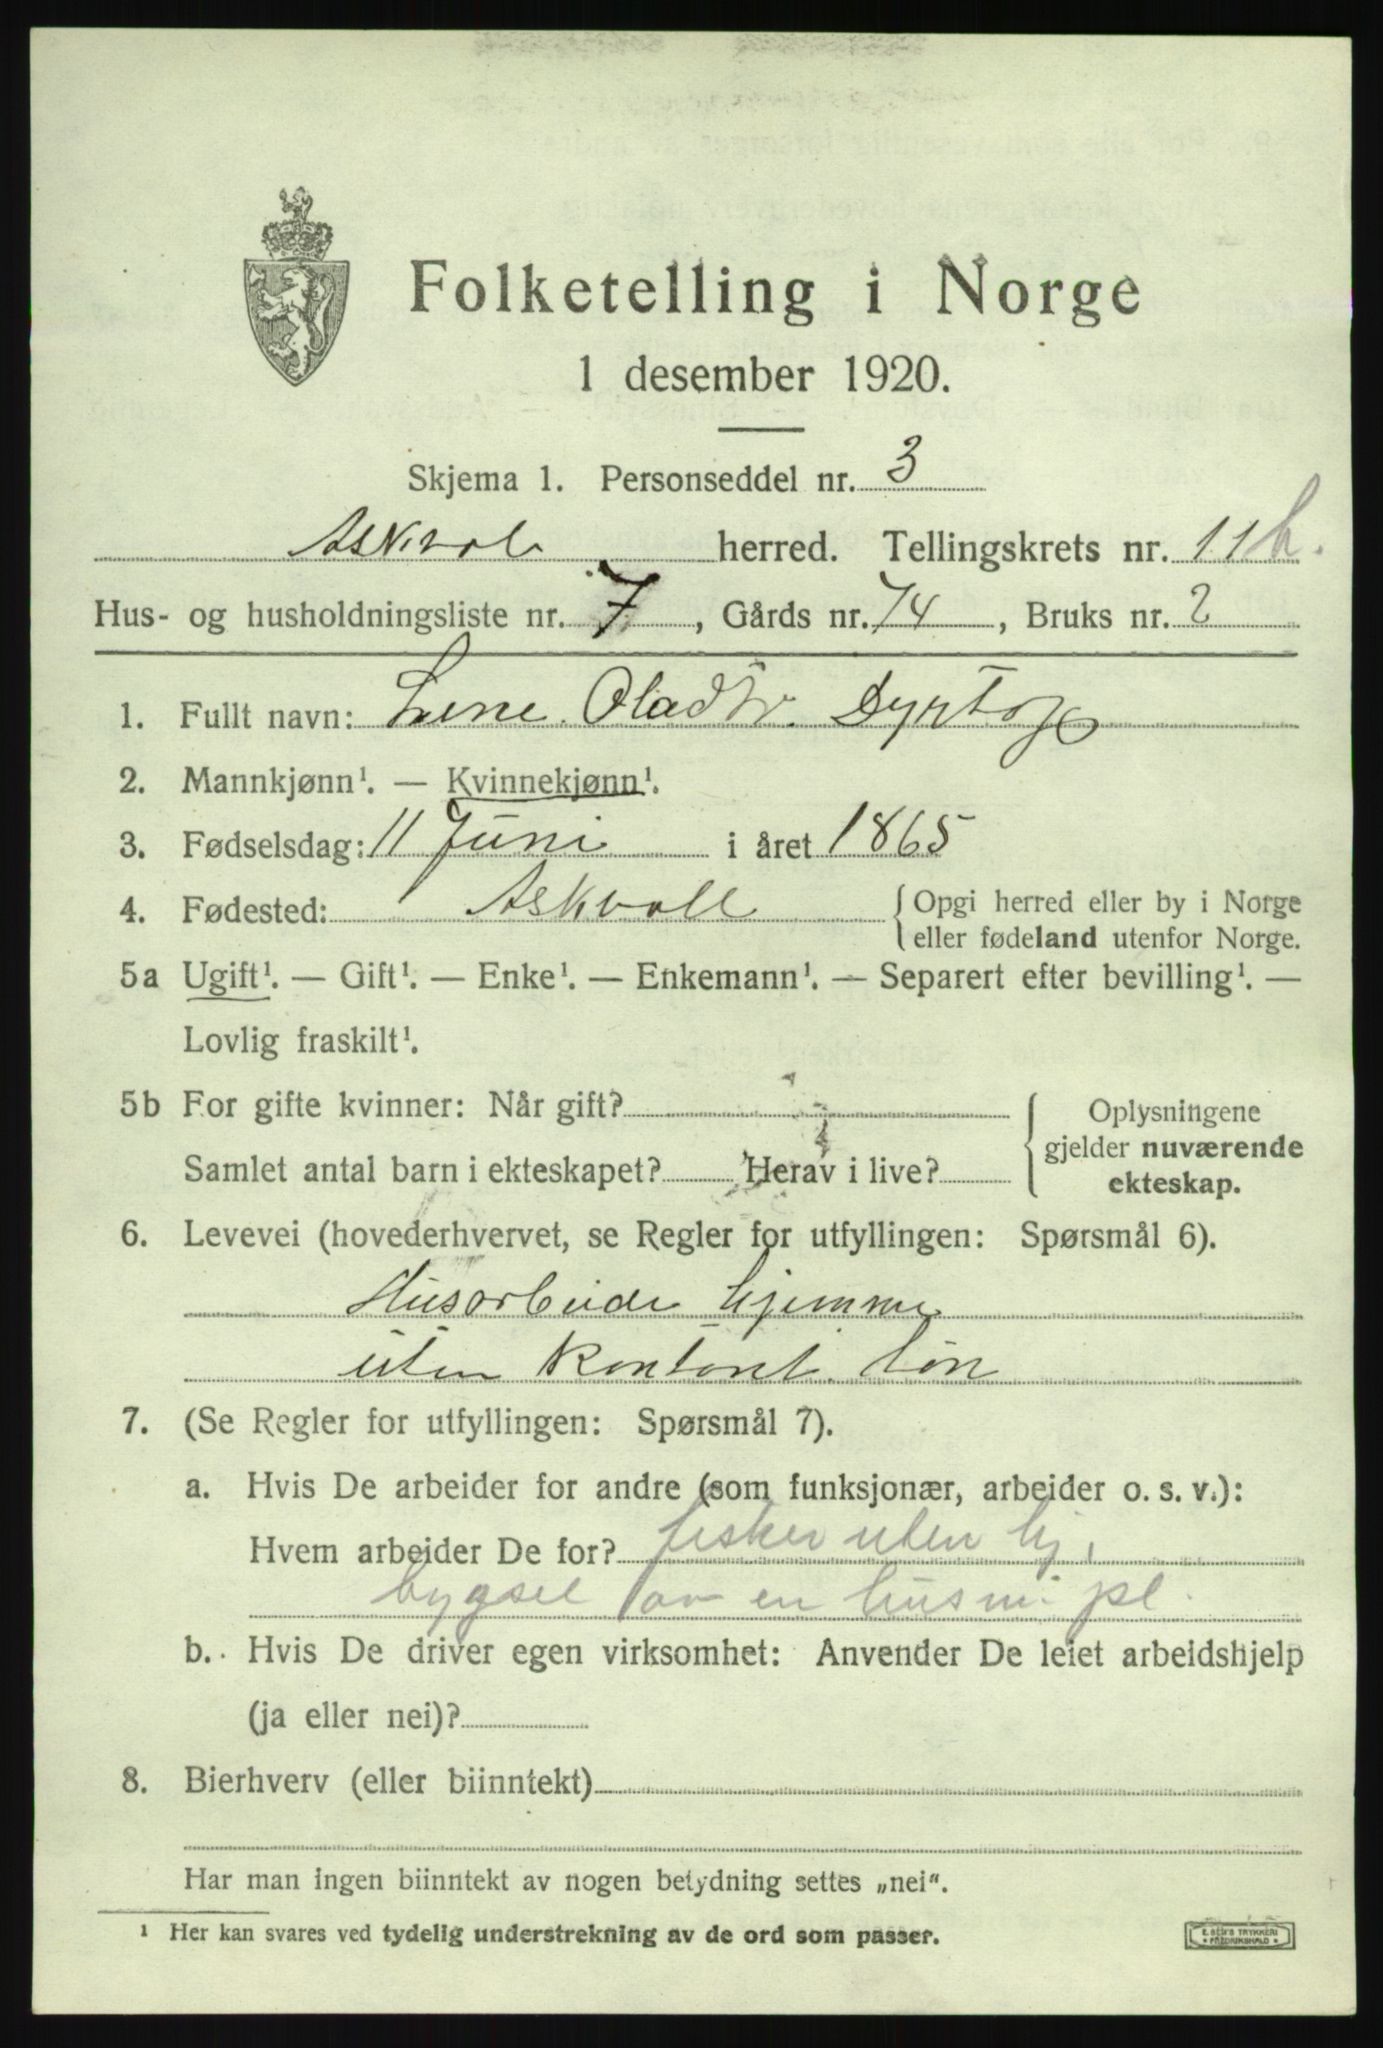 Folketelling i Norge
1 desember 1920.
Skjema 1. Personseddel nr. 3
Askvol herred. Tellingskrets nr. 11 b.
Hus- og husholdningsliste nr. 7, Gårds nr. 74, Bruks nr. 2
1. Fullt navn: Lene Oladtr. 
2. Mannkjønn¹. — Kvinnekjønn¹.
3. Fødselsdag: 11 Juni i året 1865
4. Fødested: Askvoll {Opgi herred eller by i Norge
eller fødeland utenfor Norge.
5a Ugift¹. — Gift¹. — Enke¹. — Enkemann¹. — Separert efter bevilling¹. —
Lovlig fraskilt¹.
5b For gifte kvinner: Når gift?
Samlet antal barn i ekteskapet? Herav i live?
Oplysningene
gjelder nuværende
ekteskap.
6. Levevei (hovederhvervet, se Regler for utfyllingen: Spørsmål 6).
Husarbeide hjemme
uten kontant løn
7. (Se Regler for utfyllingen: Spørsmål 7).
a. Hvis De arbeider for andre (som funksjonær, arbeider o. s. v.):
Hvem arbeider De for? fisker uten hj,
bygsel av en husm. pl.
b. Hvis De driver egen virksomhet: Anvender De leiet arbeidshjelp
(ja eller nei)?
8. Bierhverv (eller biinntekt)
Har man ingen biinntekt av nogen betydning settes „nei".
¹ Her kan svares ved tydelig understrekning av de ord som passer.
E. SEM'S TRYKKERI
FREDRIKSHALD